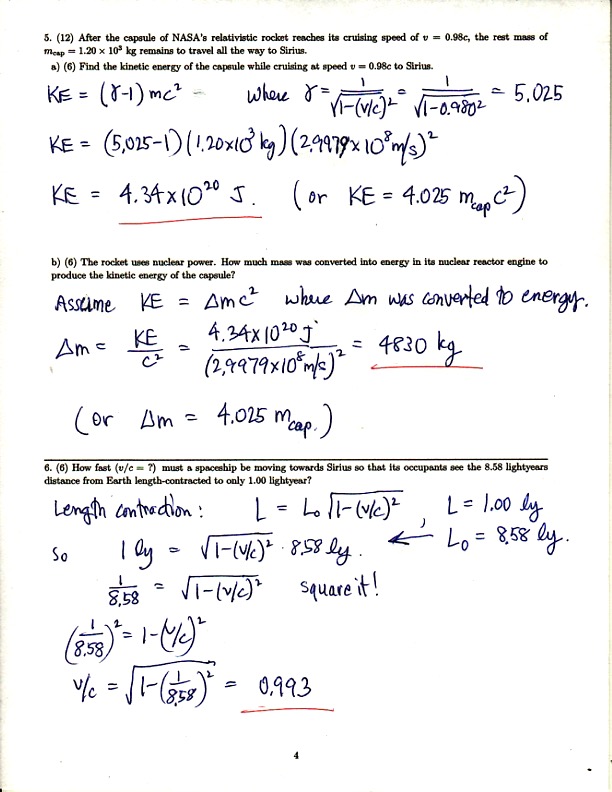 5. (12) After the capsule of NASA's relativistic rocket reaches its cruising speed of v = 0.98c, the rest mass of
m_cap = 1.20 × 10³ kg remains to travel all the way to Sirius.
a) (6) Find the kinetic energy of the capsule while cruising at speed v = 0.98c to Sirius.
KE = (γ-1) mc² where γ = 1/√(1-(v/c)²) = 1/√(1-0.980²) = 5.025
KE = (5.025-1)(1.20×10³ kg)(2.9979×10⁸ m/s)²
KE = 4.34×10²⁰ J. (or KE = 4.025 m_cap c²)
b) (6) The rocket uses nuclear power. How much mass was converted into energy in its nuclear reactor engine to
produce the kinetic energy of the capsule?
Assume KE = Δmc² where Δm was converted to energy.
Δm = KE/c² = 4.34×10²⁰ J/(2.9979×10⁸ m/s)² = 4830 kg
(or Δm = 4.025 m_cap.)
6. (6) How fast (v/c = ?) must a spaceship be moving towards Sirius so that its occupants see the 8.58 lightyears
distance from Earth length-contracted to only 1.00 lightyear?
Length contraction: L = L₀ √(1-(v/c)²) , L = 1.00 ly
So 1 ly = √(1-(v/c)²) · 8.58 ly. ← L₀ = 8.58 ly.
1/8.58 = √(1-(v/c)²) square it!
(1/8.58)² = 1-(v/c)²
v/c = √(1-(1/8.58)²) = 0.993
4